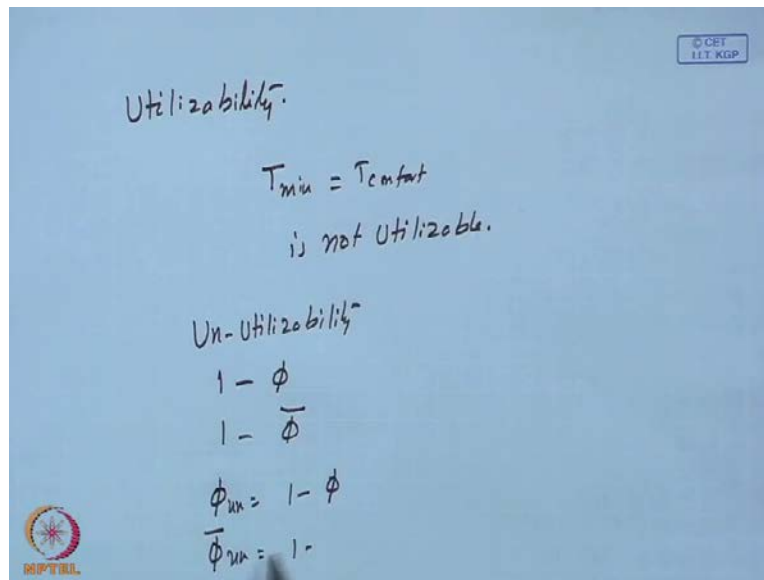 © CET
I.I.T. KGP
Utilizability.
Tmin = Tcomfort
is not Utilizable.
Un-Utilizability
1 - ϕ
1 - ϕ̅
ϕun = 1 - ϕ
ϕ̅un = 1 -
NPTEL